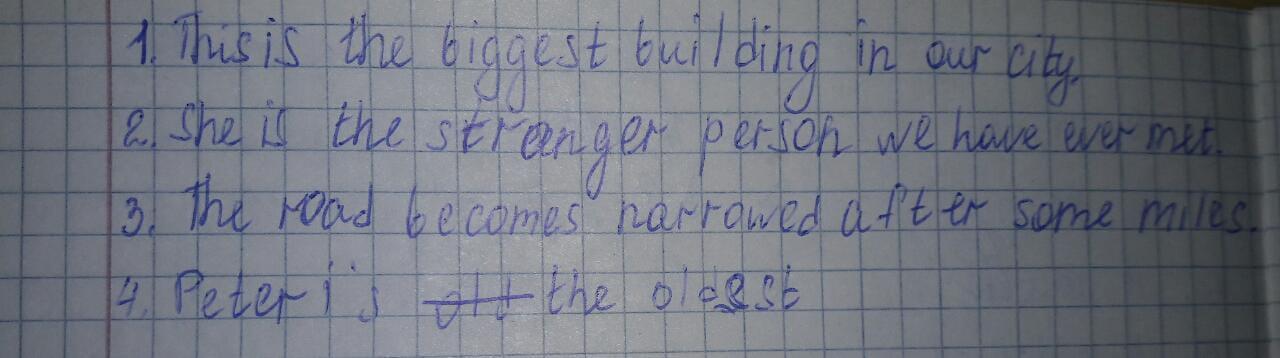 1. This is the biggest building in our city.
2. She is the stranger person we have ever met.
3. The road becomes narrowed after some miles.
4. Peter is old the oldest